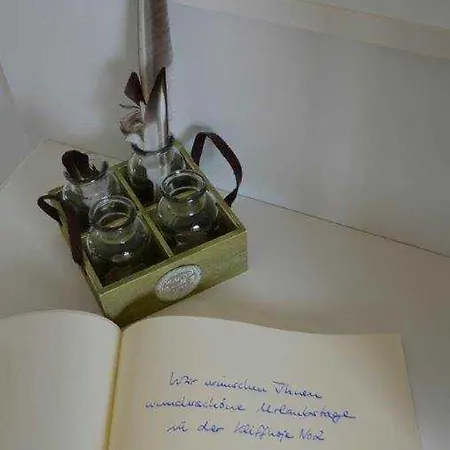 Wir wünschen Ihnen
wunderschöne Urlaubstage
in der Kliffkoje No2